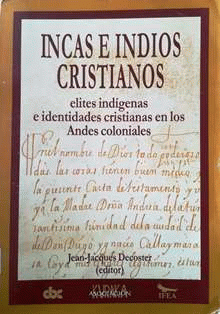 INCAS E INDIOS
CRISTIANOS
elites indígenas
e identidades cristianas en los
Andes coloniales
nombre de Dios todo poderoso
das las cosas tienen buen medio y
la presente Carta de testamento y
yo la Madre Doña Andrea
santissima trinidad de la ciudad de
de Don Diego y nacio Callaymara
Coya mis Padres legitimos, estan
Jean-Jacques Decoster
(editor)
cbc
KURAKA
ASOCIACIÓN
IFEA